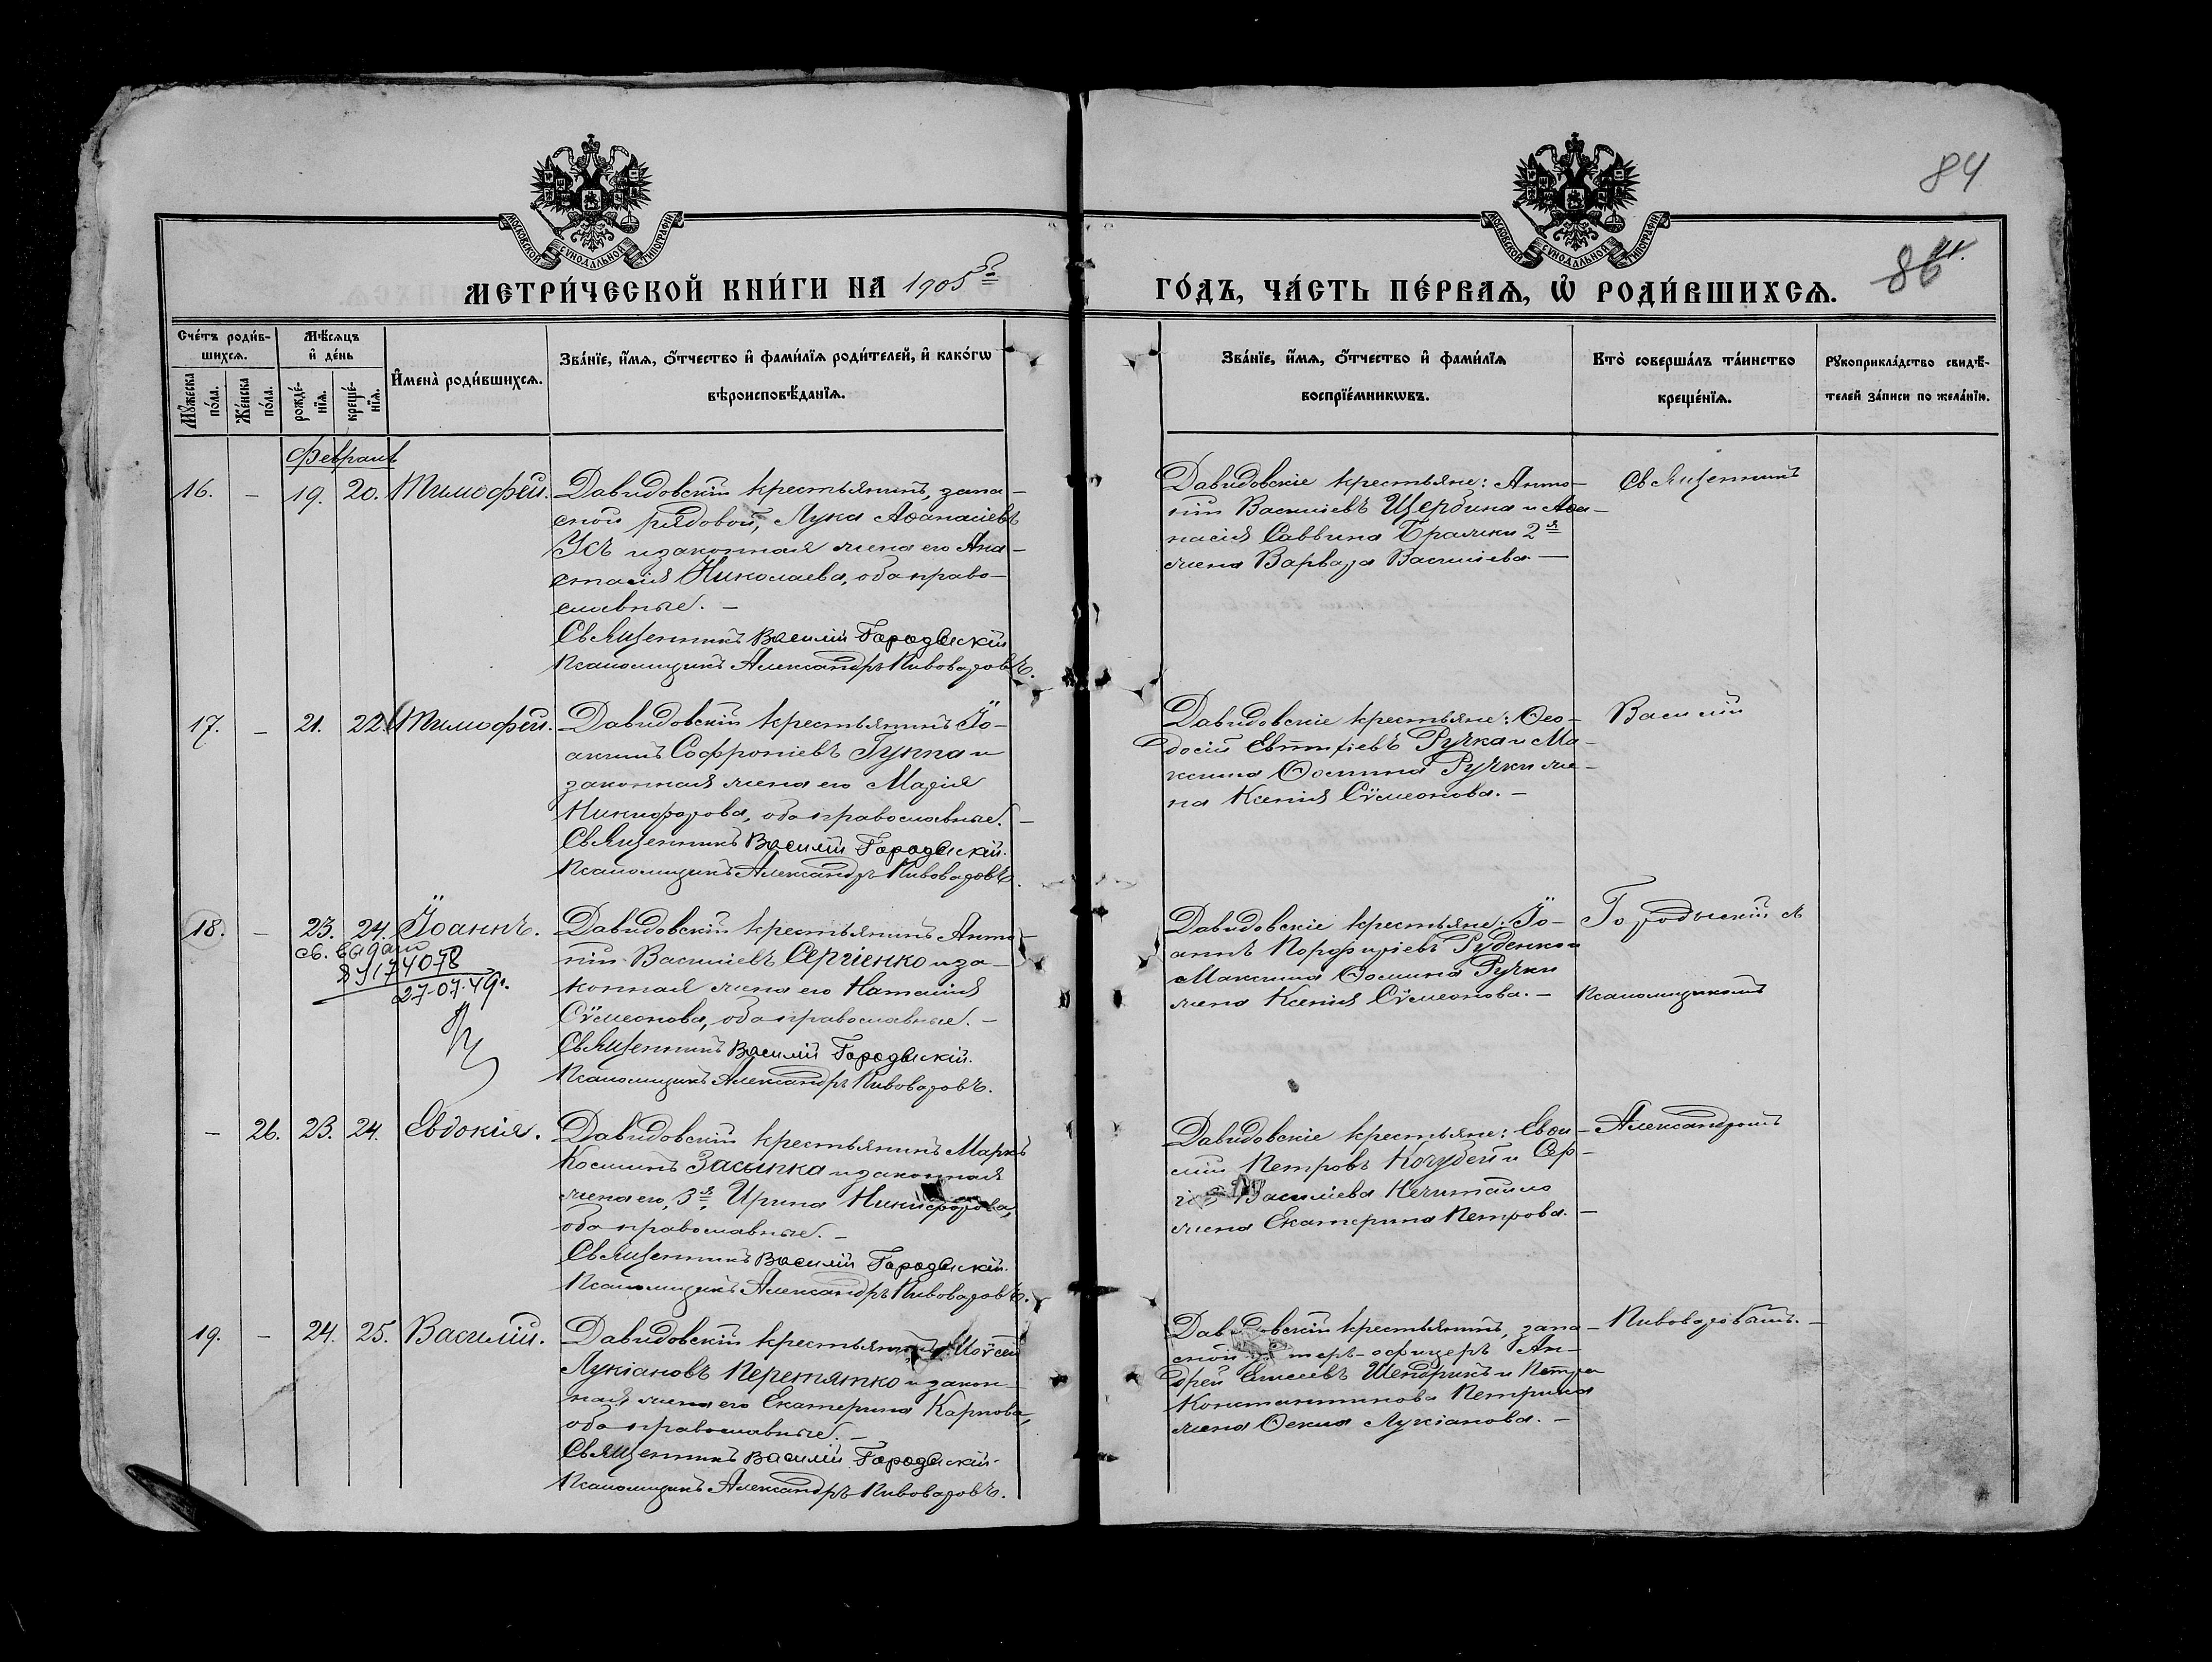 84
86
11.
МОСКОВСКОЙ СУНОДАЛЬНОЙ ТИПОГРАФІИ
МОСКОВСКОЙ СУНОДАЛЬНОЙ ТИПОГРАФІИ
МЕТРИ́ЧЕСКОЙ КНИ́ГИ НА 1905й
ГО́ДЪ, ЧА́СТЬ ПЕ́РВАѦ, Ѽ РОДИ́ВШИХСѦ.
Сче́тъ роди́в-
шихсѧ.
Мѹ́жеска
по́ла.
Же́нска
по́ла.
Мѣ́сѧцъ
и҆ де́нь
рожде́-
нїѧ.
креще́-
нїѧ.
И҆мена̀ роди́вшихсѧ.
Зва́нїе, и҆́мѧ, ѻ҆́тчество и҆ фами́лїѧ роди́телей, и҆ како́гѡ
вѣроисповѣ́данїѧ.
Зва́нїе, и҆́мѧ, ѻ҆́тчество и҆ фами́лїѧ
воспрїе́мникѡвъ.
Кто̀ соверша́лъ та́инство
креще́нїѧ.
Рꙋкоприкла́дство свидѣ́-
телей за́писи по жела́нїю.
Февраль
16. - 19. 20. Тимофей.
Давидовскій крестьянинъ, запа-
сной рядовой, Лука Аѳанасіевъ
Усъ и законная жена его Ана-
стасія Николаева, оба право-
славные. -
Священникъ Василій Городыскій
Псаломщикъ Александръ Пивоваровъ.
Давидовскіе крестьяне: Анто-
ній Василіевъ Щербина и Аѳа-
насія Саввина Бражки 2я
жена Варвара Василіева. -
Священникъ
17. - 21. 22. Тимофей.
Давидовскій крестьянинъ Іо-
акимъ Софроніевъ Гуппа и
законная жена его Марія
Никифорова, оба православные. -
Священникъ Василій Городыскій.
Псаломщикъ Александръ Пивоваровъ.
Давидовскіе крестьяне: Ѳео-
досій Евтихіевъ Ручка и Ма-
ксима Ѳомина Ручки же-
на Ксенія Сѵмеонова. -
Василій
18. - 23. 24. Іоаннъ.
св. выдан
174078
27-07-49г.
Давидовскій крестьянинъ Анто-
ній Василіевъ Сергіенко и за-
конная жена его Наталія
Сѵмеонова, оба православные. -
Священникъ Василій Городыскій.
Псаломщикъ Александръ Пивоваровъ.
Давидовскіе крестьяне: Іо-
аннъ Порфиріевъ Руденко и
Максима Ѳомина Ручки
жена Ксенія Сѵмеонова. -
Городыскій съ
Псаломщикомъ
- 26. 23. 24. Евдокія.
Давидовскій крестьянинъ Маркъ
Косминъ Засыпка и законная
жена его, 3я, Ирина Никифорова,
оба православные. -
Священникъ Василій Городыскій.
Псаломщикъ Александръ Пивоваровъ.
Давидовскіе крестьяне: Евѳи-
мій Петровъ Кочубей и Сер-
гія Василіева Нечитайло
жена Екатерина Петрова. -
Александромъ
19. - 24. 25. Василій.
Давидовскій крестьянинъ Моѵсей
Лукіановъ Перетятко и закон-
ная жена его Екатерина Карпова,
оба православные. -
Священникъ Василій Городыскій.
Псаломщикъ Александръ Пивоваровъ.
Давидовскій крестьянинъ, запа-
сной унтеръ-офицеръ Ан-
дрей Елисеевъ Шендрикъ и Петра
Константинова Петрика
жена Ѳекла Лукіанова. -
Пивоваровымъ. -